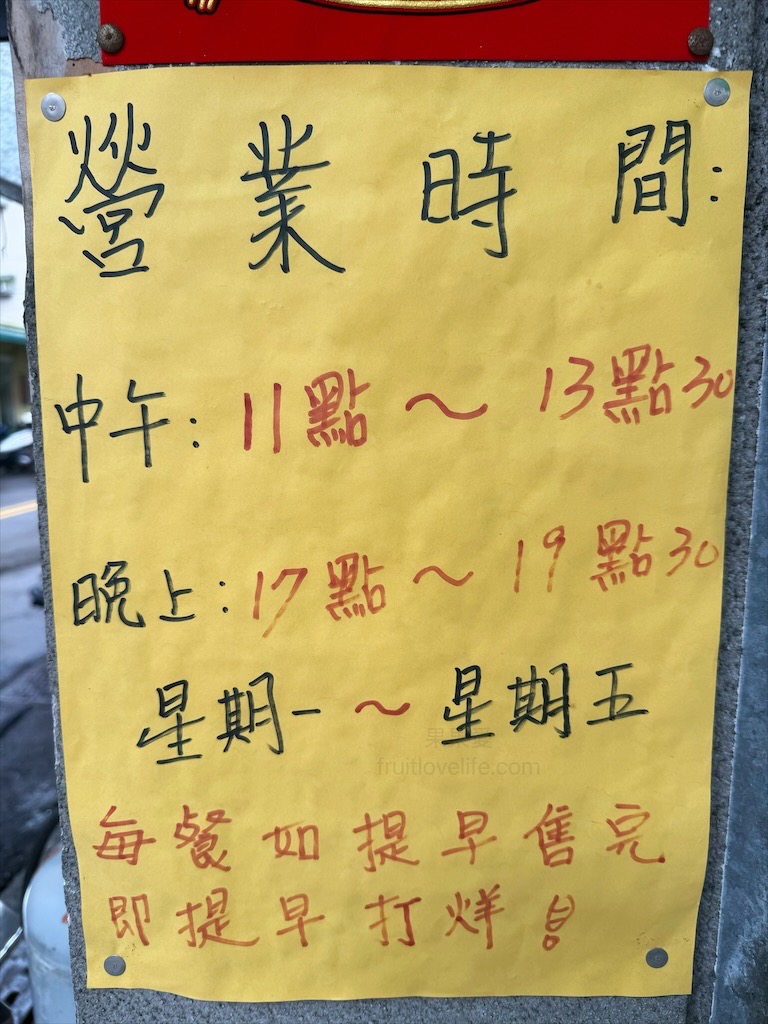 營業時間:
中午: 11點～13點30
晚上: 17點～19點30
星期一～星期五
果果愛
fruitlovelife.com
每餐如提早售完
即提早打烊!